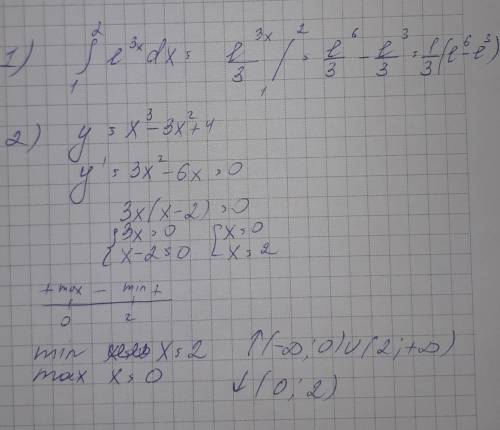 1) ∫₁² e^3x dx = e^3x/3 |₁² = e^6/3 - e^3/3 = 1/3 (e^6 - e^3)
2) y = x^3 - 3x^2 + 4
y' = 3x^2 - 6x = 0
3x(x-2) = 0
{3x=0 {x=0
{x-2=0 {x=2
+ max - min +
0 2
min x=2 ↑(-∞;0)∪(2;+∞)
max x=0 ↓(0;2)